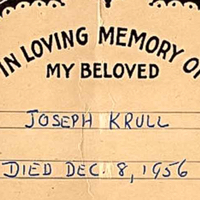 IN LOVING MEMORY OF
MY BELOVED
JOSEPH KRULL
DIED DEC. 8, 1956